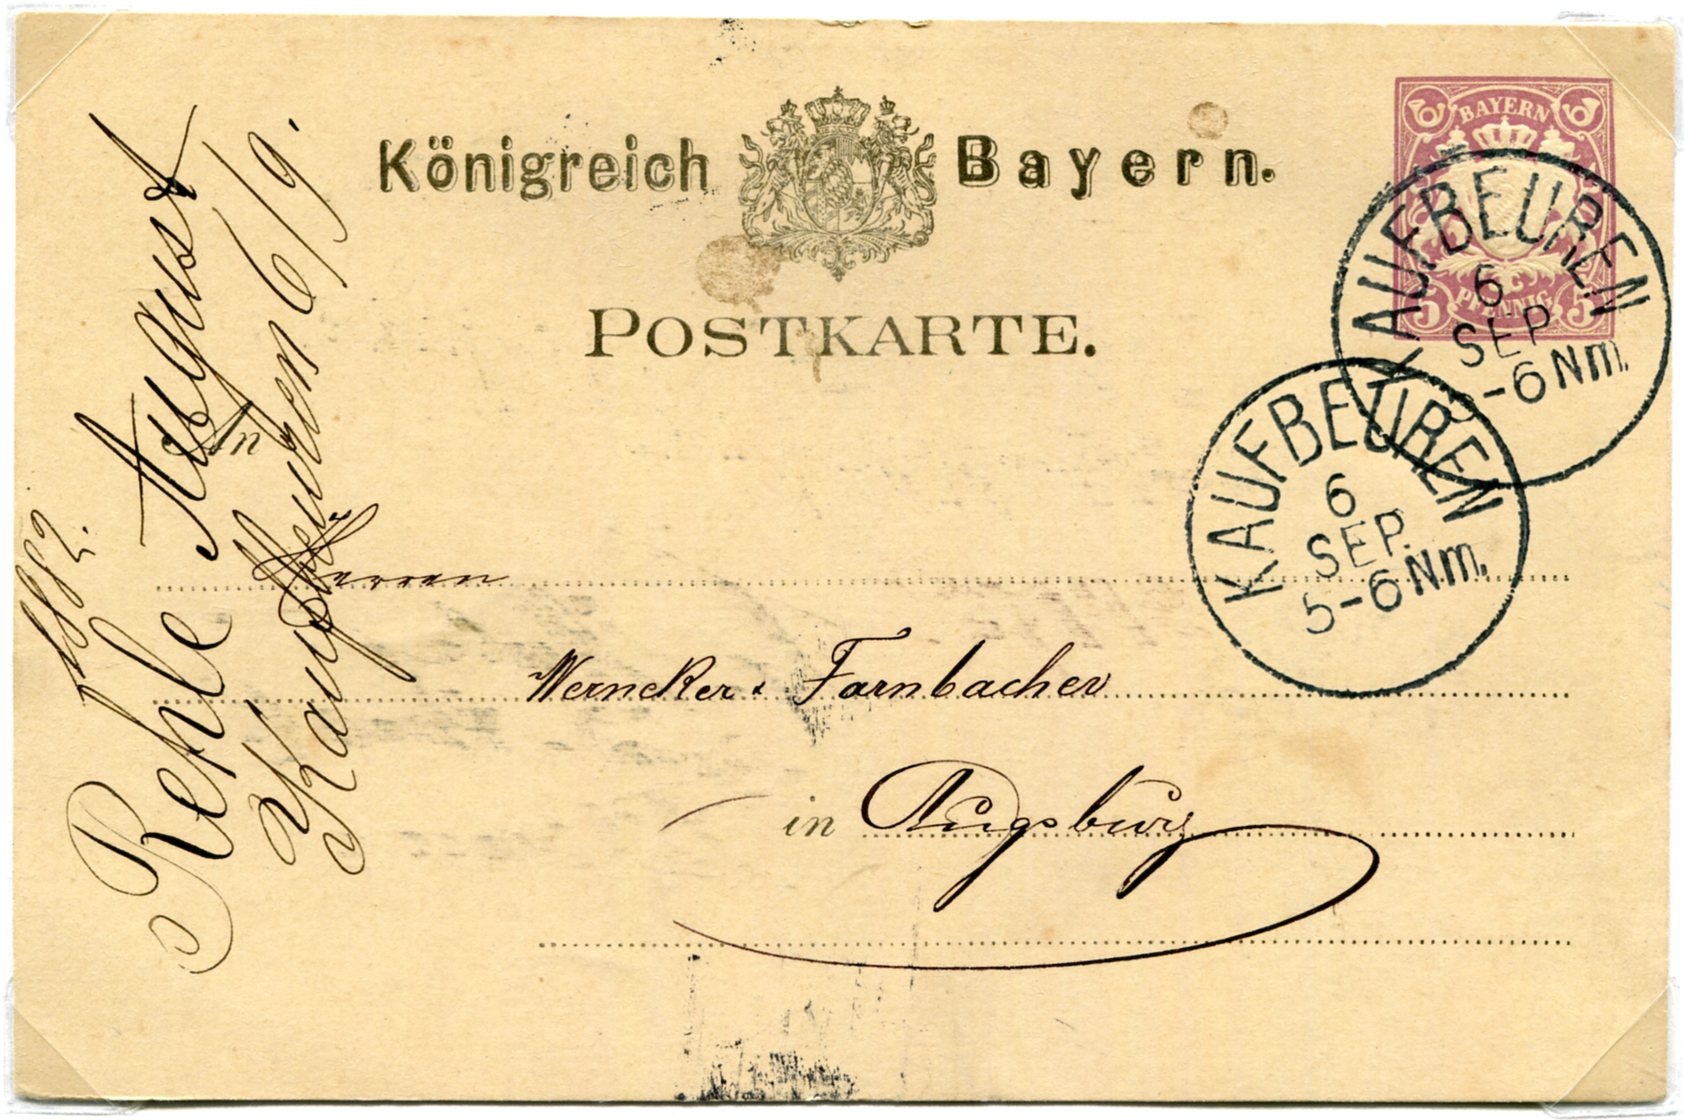 Königreich Bayern.
BAYERN
5 PFENNIG 5
POSTKARTE.
KAUFBEUREN
6
SEP
5-6 Nm.
KAUFBEUREN
6
SEP.
5-6 Nm.
An
Herren
Wernecker & Farnbacher
in Augsburg
1882.
Rehle August
Kaufbeuren 6/9.